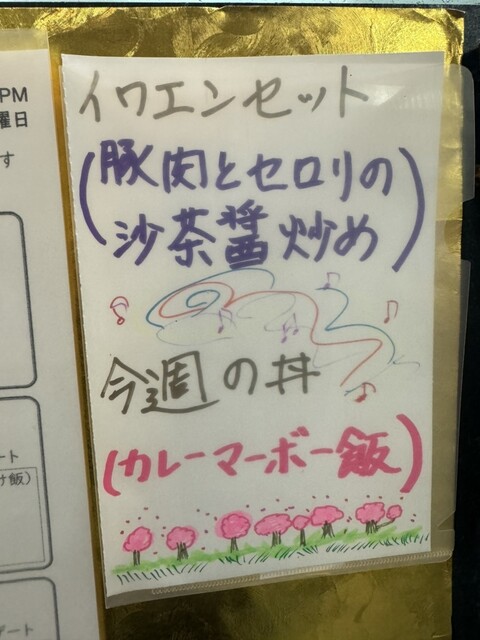 PM
曜日
す
イワエンセット
(豚肉とセロリの
沙茶醤炒め)
今週の丼
(カレーマーボー飯)
ート
け飯)
デート